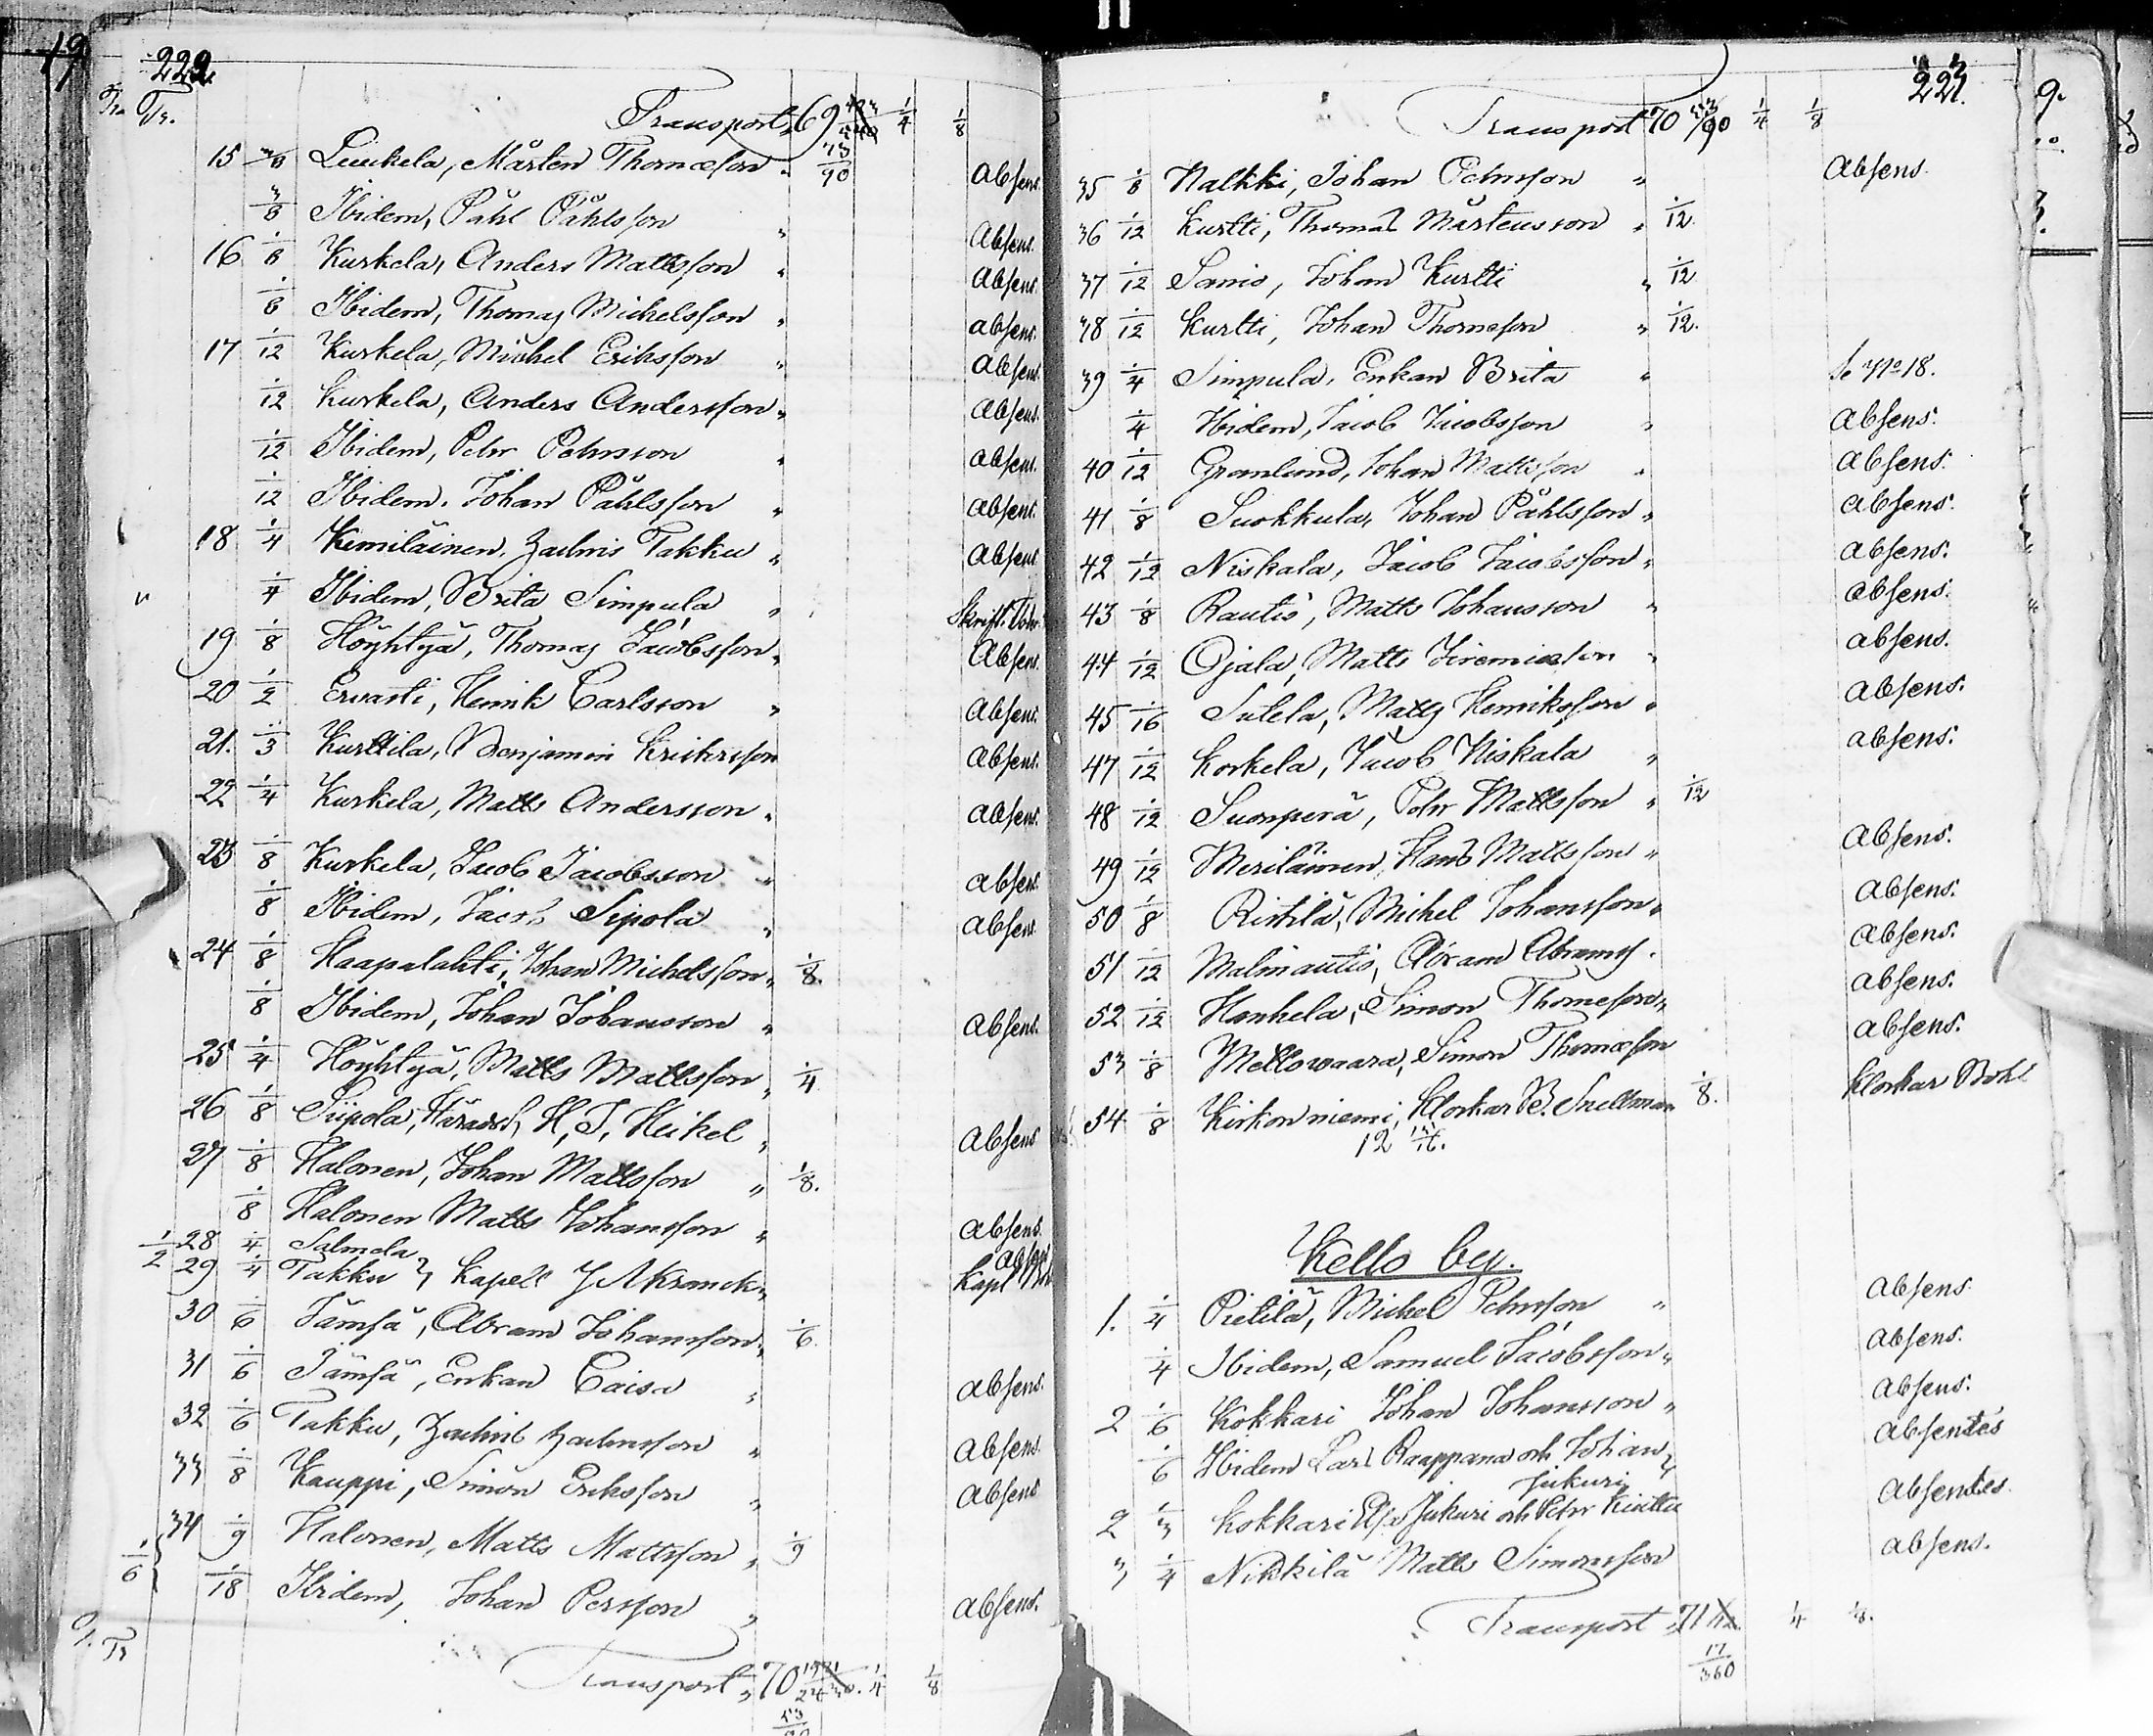 19
222.
Tr.
Transport 69 1/4 1/8
73/90
15 3/8 Linkela, Mårten Thomæson " Absens.
3/8 Ibidem, Påhl Påhlsson " Absens.
16 1/8 Kurkela, Anders Mattsson " Absens.
1/8 Ibidem, Thomas Michelsson " absens.
17 1/12 Kurkela, Michel Eriksson " Absens.
1/12 Kurkela, Anders Andersson " Absens.
1/12 Ibidem, Pehr Pehrsson " absens.
1/12 Ibidem, Johan Påhlsson " absens.
18 1/4 Kemiläinen, Zachris Takku " Absens
1/4 Ibidem, Brita Simpula "
19 1/8 Höyhtyä, Thomas Jacobsson " Absens.
20 1/2 Ervasti, Henrik Carlsson " Absens.
21. 1/3 Kurttila, Benjamin Erichsson Absens.
22 1/4 Kurkela, Matts Andersson " absens.
23 1/8 Kurkela, Jacob Jacobsson " absens.
1/8 Ibidem, Jacob Sipola " absens
24 1/8 Haapalahti, Johan Michelsson " 1/8.
1/8 Ibidem, Johan Johansson " absens.
25 1/4 Höyhtyä, Matts Mattsson " 1/4
26 1/8 Siipola, Häradsh. H. J. Heikel " Absens
27 1/8 Halonen, Johan Mattsson " 1/8.
1/8 Halonen Matts Johansson " absens.
1/2 28 1/4 Salmela absens
29 1/4 Takku } Kapell J A Kranck " Kapl
30 1/6 Jämsä, Abram Johansson " 1/6.
31 1/6 Jämsä, Enkan Caisa " absens.
32 1/6 Takku, Zachris Zachrisson " Absens.
33 1/8 Kauppi, Simon Eriksson " absens
34 1/9 Halonen, Matts Mattsson " 1/9
1/6 1/18 Ibidem, Johan Persson " absens.
Tr
Transport " 70 1/4 1/8
Transport 70 1/4 1/8
35 1/8 Nalkki, Johan Pehrsson " Absens.
36 1/12 Kurtti, Thomas Mårtensson " 1/12.
37 1/12 Sanio, Johan Kurtti " 1/12
38 1/12 Kurtti, Johan Thomeson " 1/12.
39 1/4 Simpula, Enkan Brita " Se No 18.
1/4 Ibidem, Jacob Jacobsson " Absens.
40 1/12 Granlund, Johan Mattsson " absens.
41 1/8 Suokkula, Johan Påhlsson " absens.
42 1/12 Niskala, Jacob Jacobsson " absens.
43 1/8 Rautio, Matts Johansson " absens.
44 1/12 Ojala, Matts Jeremiæson " absens.
45 1/16 Sulela, Matts Henriksson " absens.
47 1/12 Korkela, Jacob Niskala " absens.
48 1/12 Suonperä, Pehr Mattsson " 1/12
49 1/12 Meriläinen, Hans Mattsson " Absens.
50 1/8 Ristilä, Michel Johansson " absens.
51 1/12 Malinautio, Abram Abrams. absens.
52 1/12 Hankela, Simon Thomeson " absens.
53 1/8 Mettowaara, Simon Thomæson absens.
54 1/8 Kirkonniemi, Klockar B. Snellman 1/8. Klockar Bohl
Kello by.
1. 1/4 Pietilä, Michel Pehrsson " absens
1/4 Ibidem, Samuel Jacobsson " absens.
2 1/6 Kokkari Johan Johansson " absens.
1/6 Ibidem Lars Raappana och Johan absentes
Jukuri
2 1/3 Kokkari Jukuri och Pehr absentes
3 1/4 Nikkilä Matts Simonsson absens.
Transport 71 1/4 1/8.
17/360